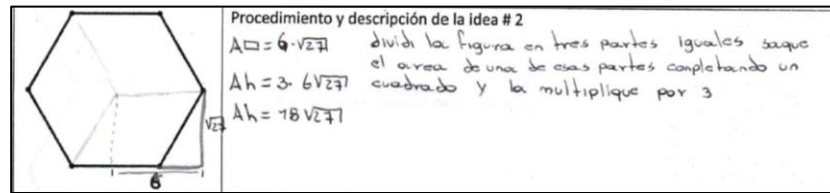 Procedimiento y descripción de la idea # 2
A□ = 6·√27
dividi la figura en tres partes iguales saque
el area de una de esas partes completando un
Ah = 3· 6√27
cuadrado y la multiplique por 3
Ah = 18√27
√27
6